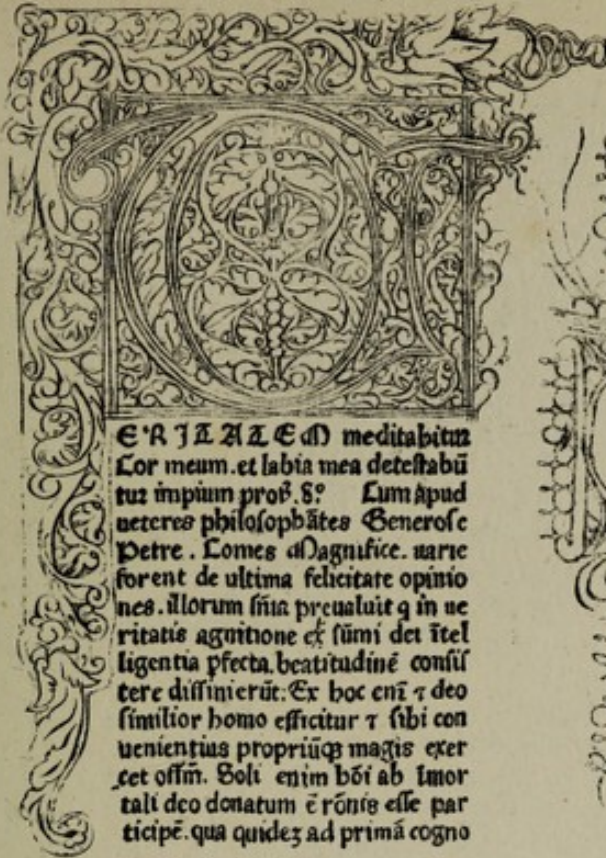 VERITATEM meditabitur
Cor meum. et labia mea detestabū
tur impium prob. 8° Cum apud
ueteres philosophātes Generose
Petre. Comes Magnifice. uarie
forent de ultima felicitate opinio
nes. illorum sñia preualuit q in ue
ritatis agnitione & sūmi dei ītel
ligentia pfecta. beatitudinē consis
tere diffinierūt. Ex hoc enī ⁊ deo
similior homo efficitur ⁊ sibi con
uenientius propriūq3 magis exer
cet offm̄. Soli enim hōi ab Imor
tali deo donatum ē rōnis esse par
ticipē. qua quidez ad primā cogno